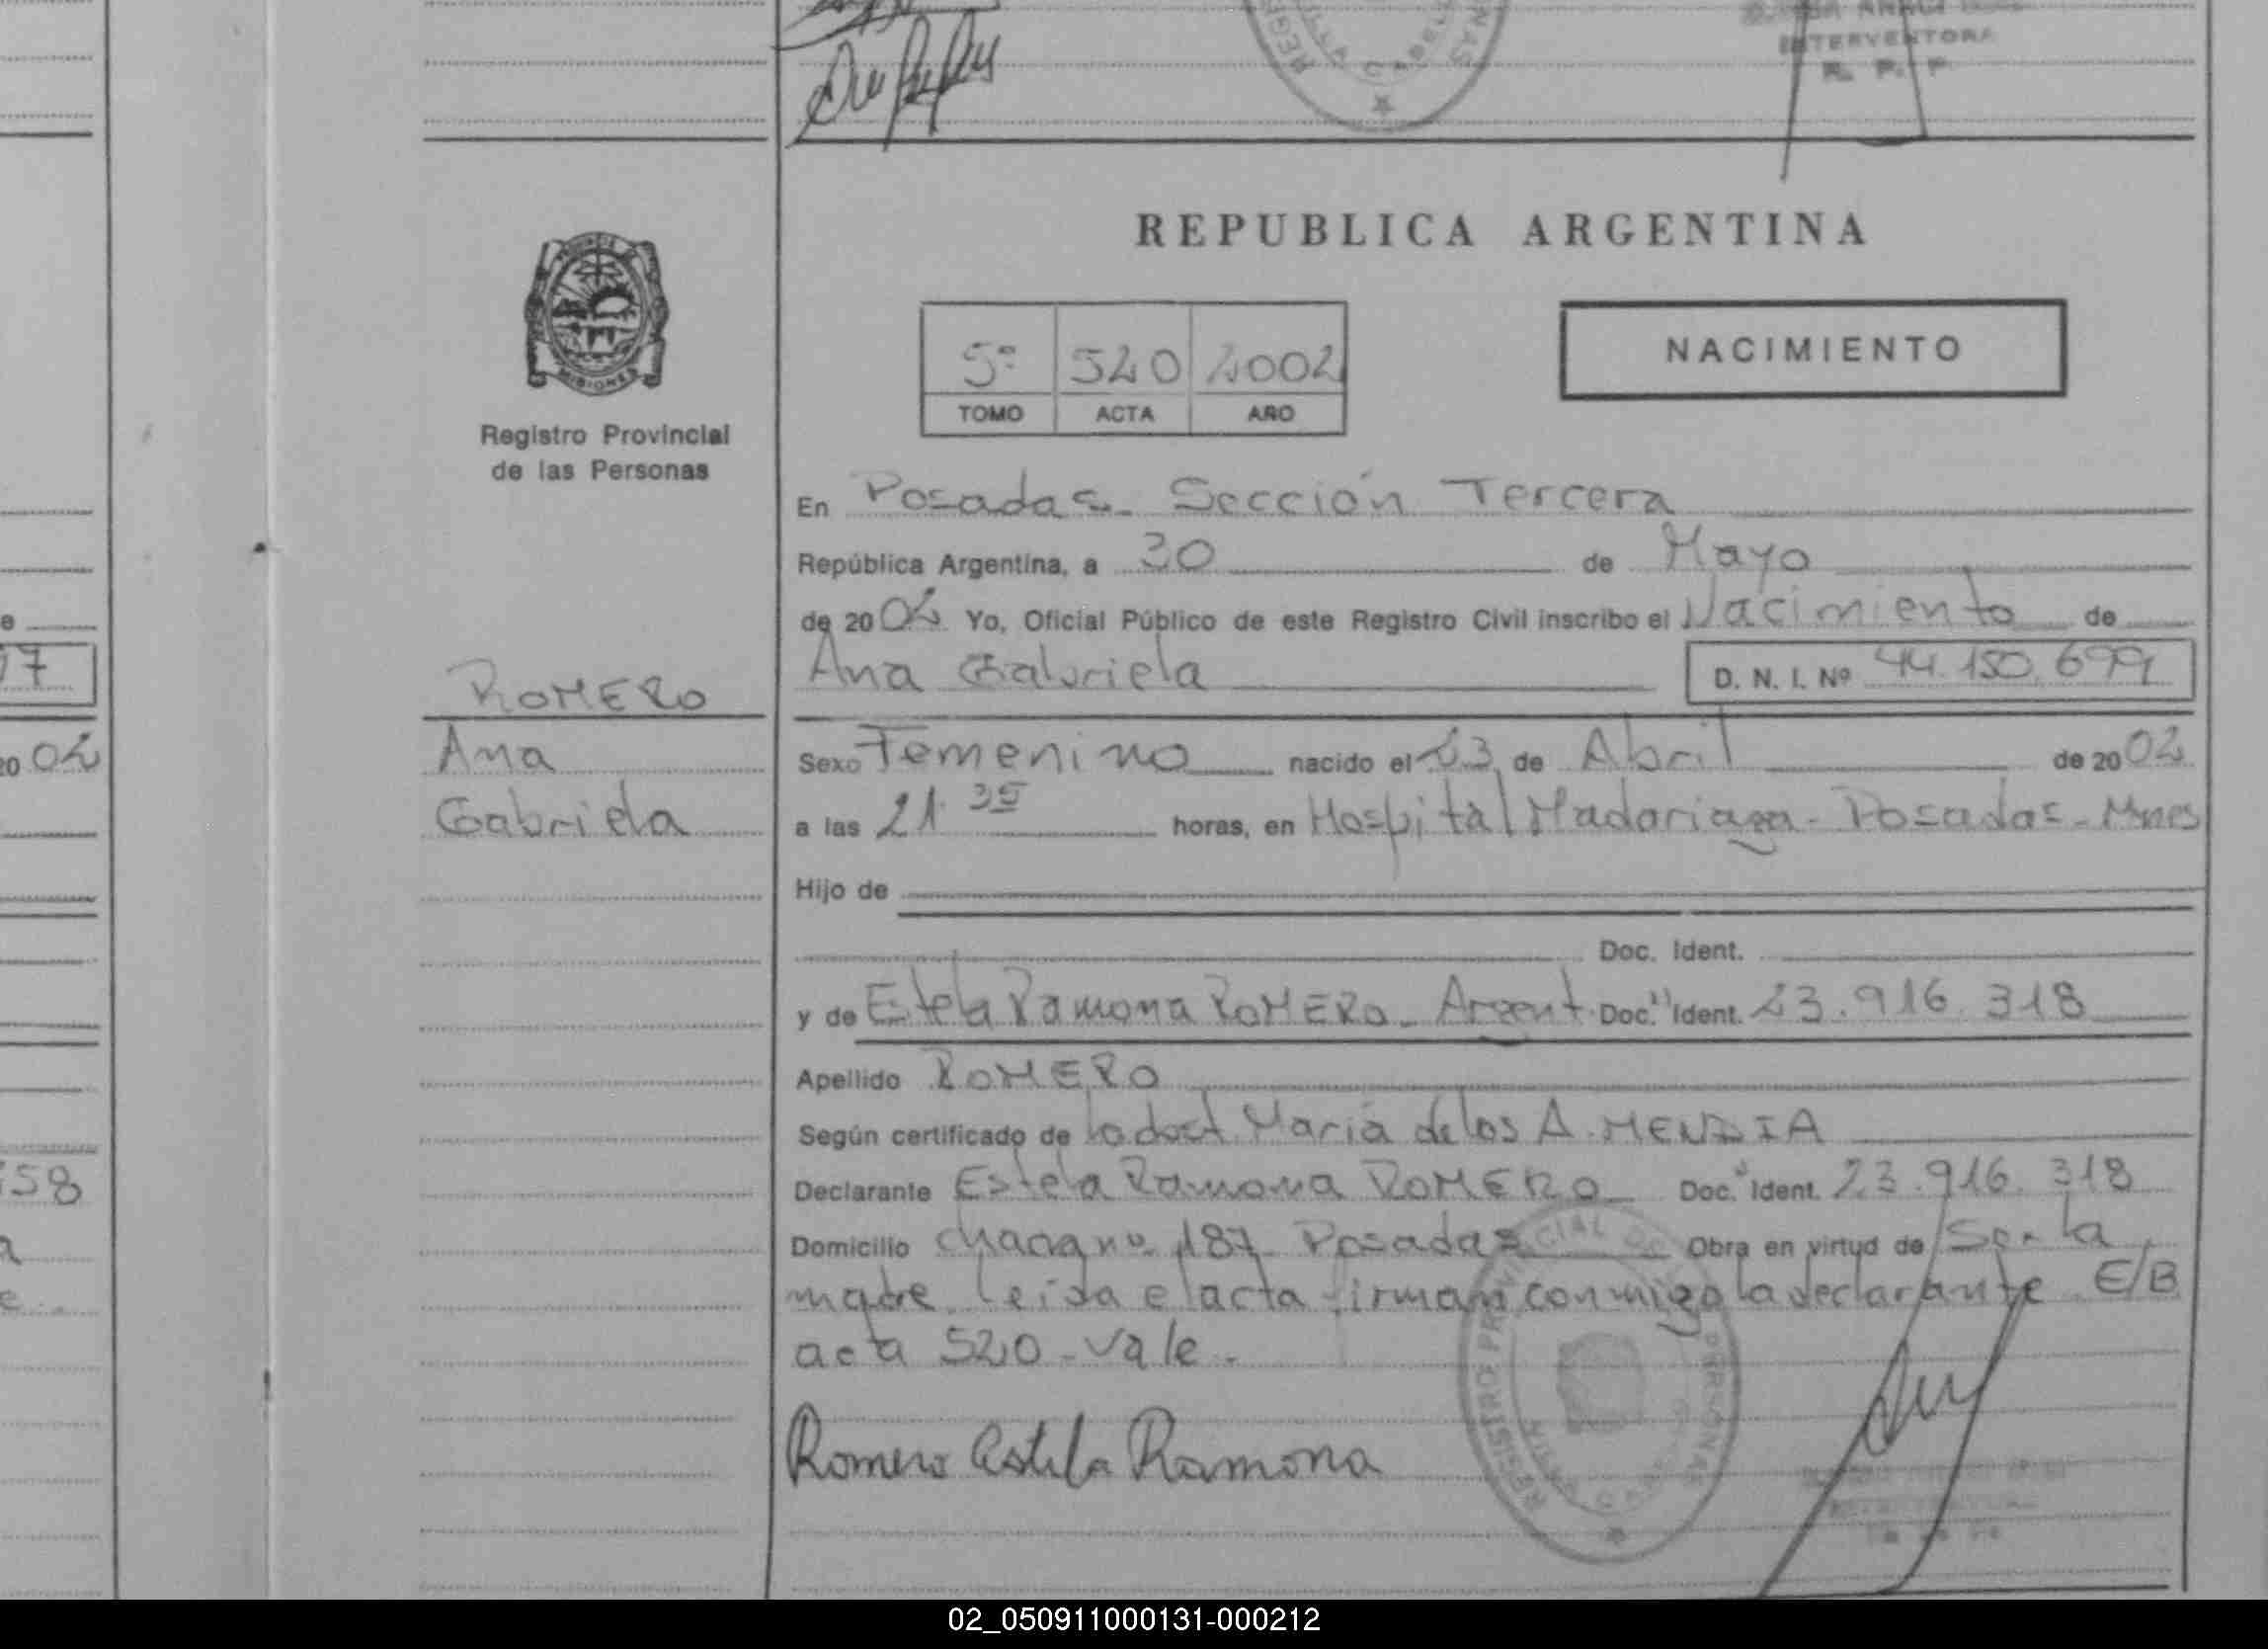 INTERVENTORA
R. P. P.
REPUBLICA ARGENTINA
MISIONES
Registro Provincial
de las Personas
5º 520 2002
TOMO ACTA AÑO
NACIMIENTO
En Posadas - Sección Tercera
República Argentina, a 30 de Mayo
de 2002 Yo, Oficial Público de este Registro Civil inscribo el Nacimiento de
17
ROMERO
Ana Gabriela D. N. I. Nº 44.150.699
20 02
Ana
Gabriela
Sexo Femenino nacido el 23 de Abril de 2002
a las 21.35 horas, en Hospital Madariaga - Posadas - Mnes
Hijo de
Doc. Ident.
y de Estela Ramona ROMERO - Argent. Doc. Ident. 23.916.318
Apellido ROMERO
Según certificado de la doct. María de los A. MENDIA
58
Declarante Estela Ramona ROMERO Doc. Ident. 23.916.318
Domicilio chacra nº 187 Posadas Obra en virtud de Ser la
madre. Leida el acta firman conmigo la declarante. E/B
acta 520 - vale -
Romero Estela Ramona
REGISTRO PROVINCIAL DE LAS PERSONAS
02_050911000131-000212